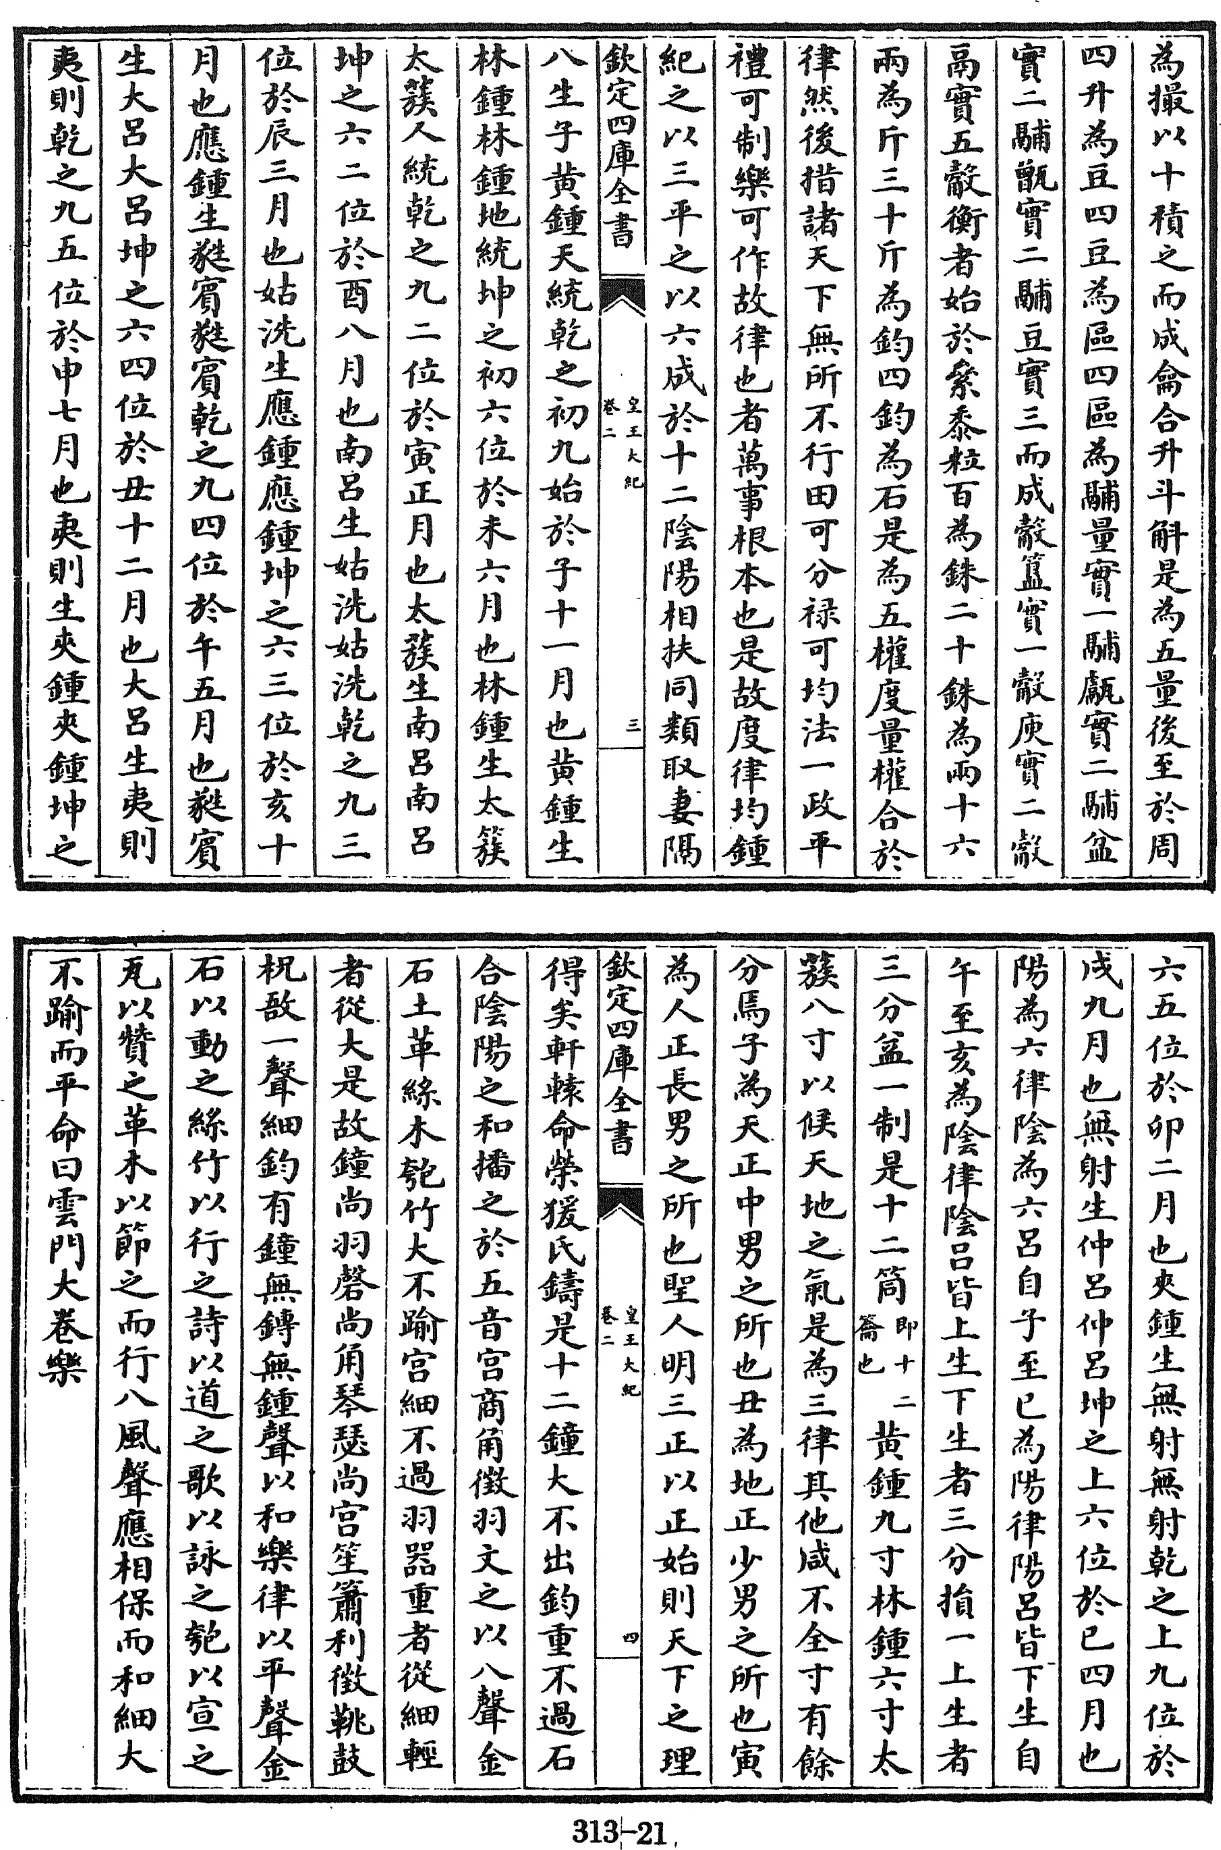 為撮以十積之而成龠合升斗斛是為五量後至於周
四升為豆四豆為區四區為鬴量實一鬴甗實二鬴盆
實二鬴甑實二鬴豆實三而成觳簋實一觳庾實二觳
鬲實五觳衡者始於絫黍粒百為銖二十銖為兩十六
兩為斤三十斤為鈞四鈞為石是為五權度量權合於
律然後措諸天下無所不行田可分祿可均法一政平
禮可制樂可作故律也者萬事根本也是故度律均鍾
紀之以三平之以六成於十二陰陽相扶同類取妻隔
欽定四庫全書
皇王大紀
卷二
三
八生子黃鍾天統乾之初九始於子十一月也黃鍾生
林鍾林鍾地統坤之初六位於未六月也林鍾生太簇
太簇人統乾之九二位於寅正月也太簇生南呂南呂
坤之六二位於酉八月也南呂生姑洗姑洗乾之九三
位於辰三月也姑洗生應鍾應鍾坤之六三位於亥十
月也應鍾生蕤賓蕤賓乾之九四位於午五月也蕤賓
生大呂大呂坤之六四位於丑十二月也大呂生夷則
夷則乾之九五位於申七月也夷則生夾鍾夾鍾坤之
六五位於卯二月也夾鍾生無射無射乾之上九位於
戌九月也無射生仲呂仲呂坤之上六位於巳四月也
陽為六律陰為六呂自子至巳為陽律陽呂皆下生自
午至亥為陰律陰呂皆上生下生者三分損一上生者
三分益一制是十二筒即十二籥也黃鍾九寸林鍾六寸太
簇八寸以候天地之氣是為三律其他咸不全寸有餘
分焉子為天正中男之所也丑為地正少男之所也寅
為人正長男之所也聖人明三正以正始則天下之理
欽定四庫全書
皇王大紀
卷二
四
得矣軒轅命榮猨氏鑄是十二鐘大不出鈞重不過石
合陰陽之和播之於五音宮商角徵羽文之以八聲金
石土革絲木匏竹大不踰宮細不過羽器重者從細輕
者從大是故鐘尚羽磬尚角琴瑟尚宮笙簫利徵鼗鼓
柷敔一聲細鈞有鐘無鎛無鍾聲以和樂律以平聲金
石以動之絲竹以行之詩以道之歌以詠之匏以宣之
瓦以贊之革木以節之而行八風聲應相保而和細大
不踰而平命曰雲門大卷樂
313-21